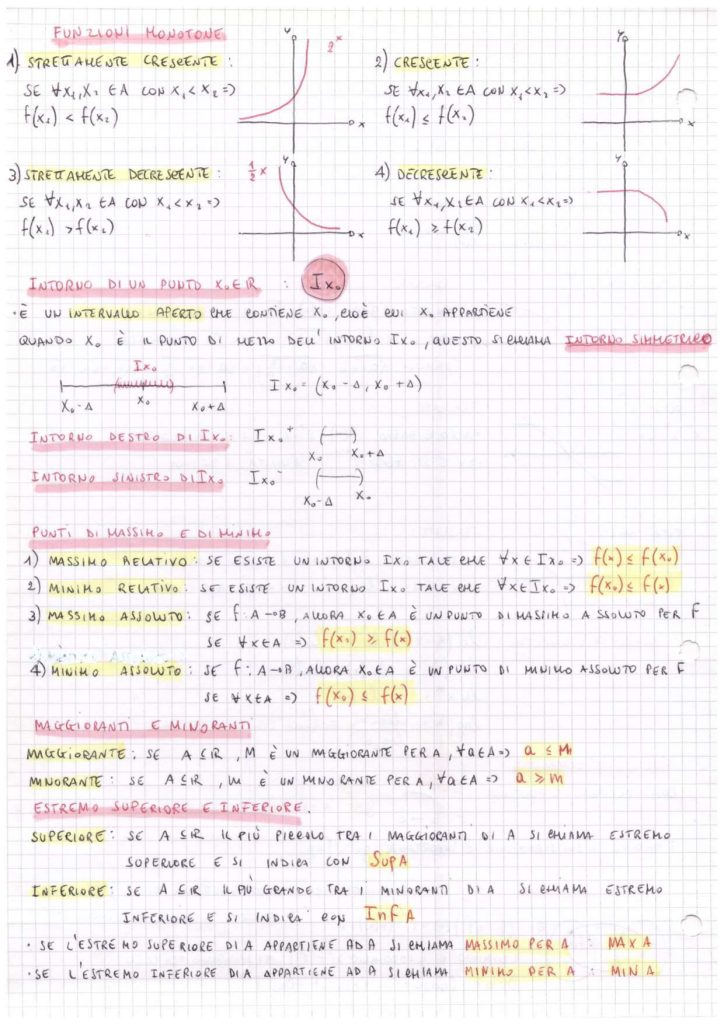 FUNZIONI MONOTONE
1) STRETTAMENTE CRESCENTE :
SE ∀x₁,x₂ ∈A CON x₁<x₂ =>
f(x₁) < f(x₂)
y
2ˣ
x
2) CRESCENTE :
SE ∀x₁,x₂ ∈A CON x₁<x₂ =>
f(x₁) ≤ f(x₂)
y
x
3) STRETTAMENTE DECRESCENTE :
SE ∀x₁,x₂ ∈A CON x₁<x₂ =>
f(x₁) >f(x₂)
y
1/2 ˣ
x
4) DECRESCENTE :
SE ∀x₁,x₂ ∈A CON x₁<x₂ =>
f(x₁) ≥ f(x₂)
y
x
INTORNO DI UN PUNTO x₀∈ℝ : Ix₀
· È UN INTERVALLO APERTO CHE CONTIENE x₀, CIOÈ CUI x₀ APPARTIENE
QUANDO x₀ È IL PUNTO DI MEZZO DELL' INTORNO Ix₀, QUESTO SI CHIAMA INTORNO SIMMETRICO
Ix₀
x₀-Δ x₀ x₀+Δ
I x₀ = (x₀ - Δ, x₀ + Δ)
INTORNO DESTRO DI Ix₀: Ix₀⁺
x₀ x₀+Δ
INTORNO SINISTRO DI Ix₀ Ix₀⁻
x₀-Δ x₀
PUNTI DI MASSIMO E DI MINIMO
1) MASSIMO RELATIVO: SE ESISTE UN INTORNO Ix₀ TALE CHE ∀x ∈ Ix₀ => f(x) ≤ f(x₀)
2) MINIMO RELATIVO: SE ESISTE UN INTORNO Ix₀ TALE CHE ∀x∈Ix₀ => f(x₀) ≤ f(x)
3) MASSIMO ASSOLUTO: SE f: A→B, ALLORA x₀∈A È UN PUNTO DI MASSIMO ASSOLUTO PER F
SE ∀x∈A => f(x₀) ≥ f(x)
4) MINIMO ASSOLUTO: SE f: A→B, ALLORA x₀∈A È UN PUNTO DI MINIMO ASSOLUTO PER F
SE ∀x∈A => f(x₀) ≤ f(x)
MAGGIORANTI E MINORANTI
MAGGIORANTE: SE A⊆ℝ, M È UN MAGGIORANTE PER A, ∀a∈A=> a ≤ M
MINORANTE: SE A⊆ℝ, m È UN MINORANTE PER A, ∀a∈A => a ≥ m
ESTREMO SUPERIORE E INFERIORE.
SUPERIORE: SE A ⊆ℝ IL PIÙ PICCOLO TRA I MAGGIORANTI DI A SI CHIAMA ESTREMO
SUPERIORE E SI INDICA CON Sup A
INFERIORE: SE A ⊆ℝ IL PIÙ GRANDE TRA I MINORANTI DI A SI CHIAMA ESTREMO
INFERIORE E SI INDICA CON Inf A
· SE L'ESTREMO SUPERIORE DI A APPARTIENE AD A SI CHIAMA MASSIMO PER A : MAX A
· SE L'ESTREMO INFERIORE DI A APPARTIENE AD A SI CHIAMA MINIMO PER A : MIN A